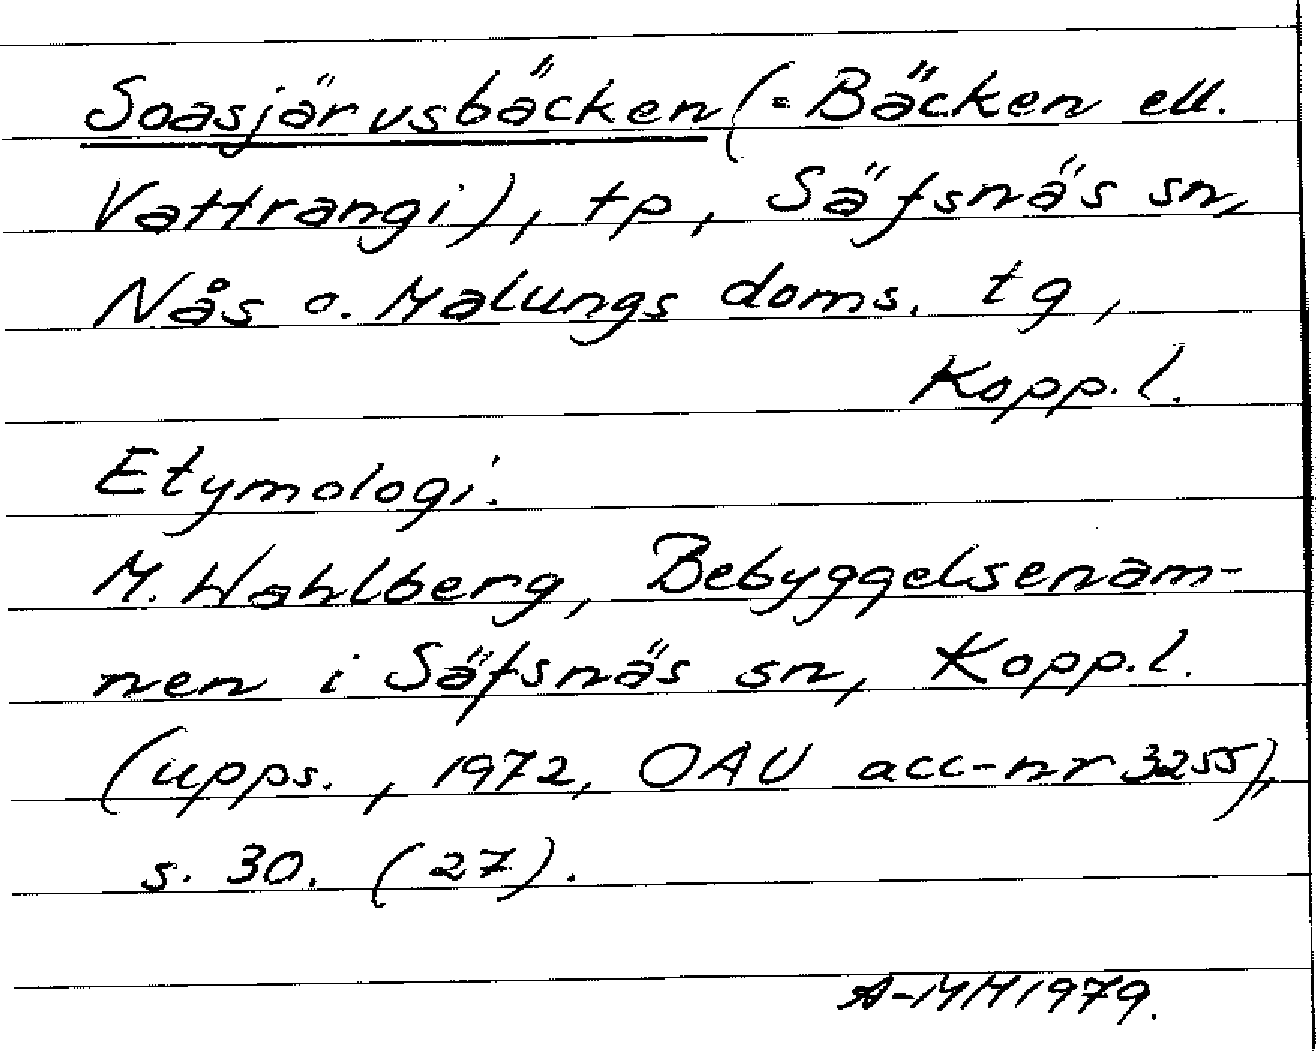 Soasjärvsbäcken (= Bäcken ell.
Vattrangi), tp, Säfsnäs sn,
Nås o. Malungs doms. tg,
Kopp. l.
Etymologi.
M. Wahlberg, Bebyggelsenam-
nen i Säfsnäs sn, Kopp. l.
(upps., 1972, OAU acc-nr 3255),
s. 30. (27).
A-MH 1979.